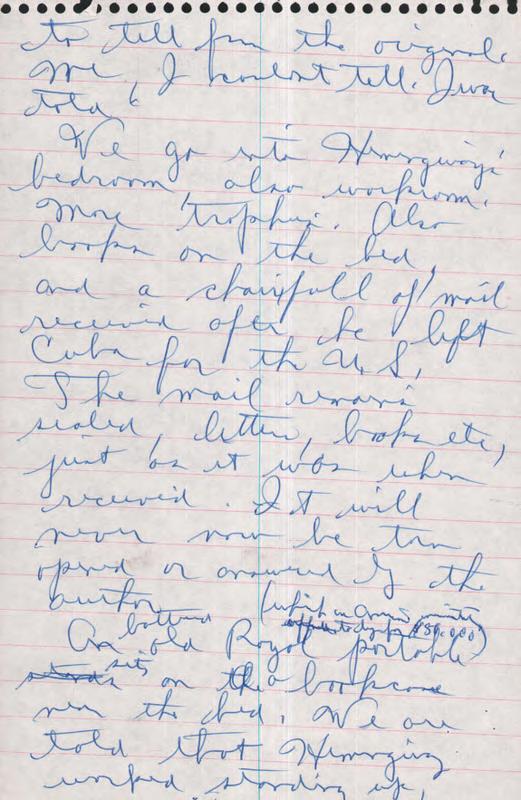 to tell from the original.
Me, I couldnt tell. I was
told
We go into Hemingway's
bedroom, also workroom.
More trophies. Also
books on the bed,
and a chairfull of mail
received after he left
Cuba for the U.S.
The mail remains
sealed, letters, books etc,
just as it was when
received. It will
never now be
opened or answered by the
author
(which an American
to buy for $50,000)
An battered old Royal portable
sits on the bookcase
near the bed. We are
told that Hemingway
worked standing up,